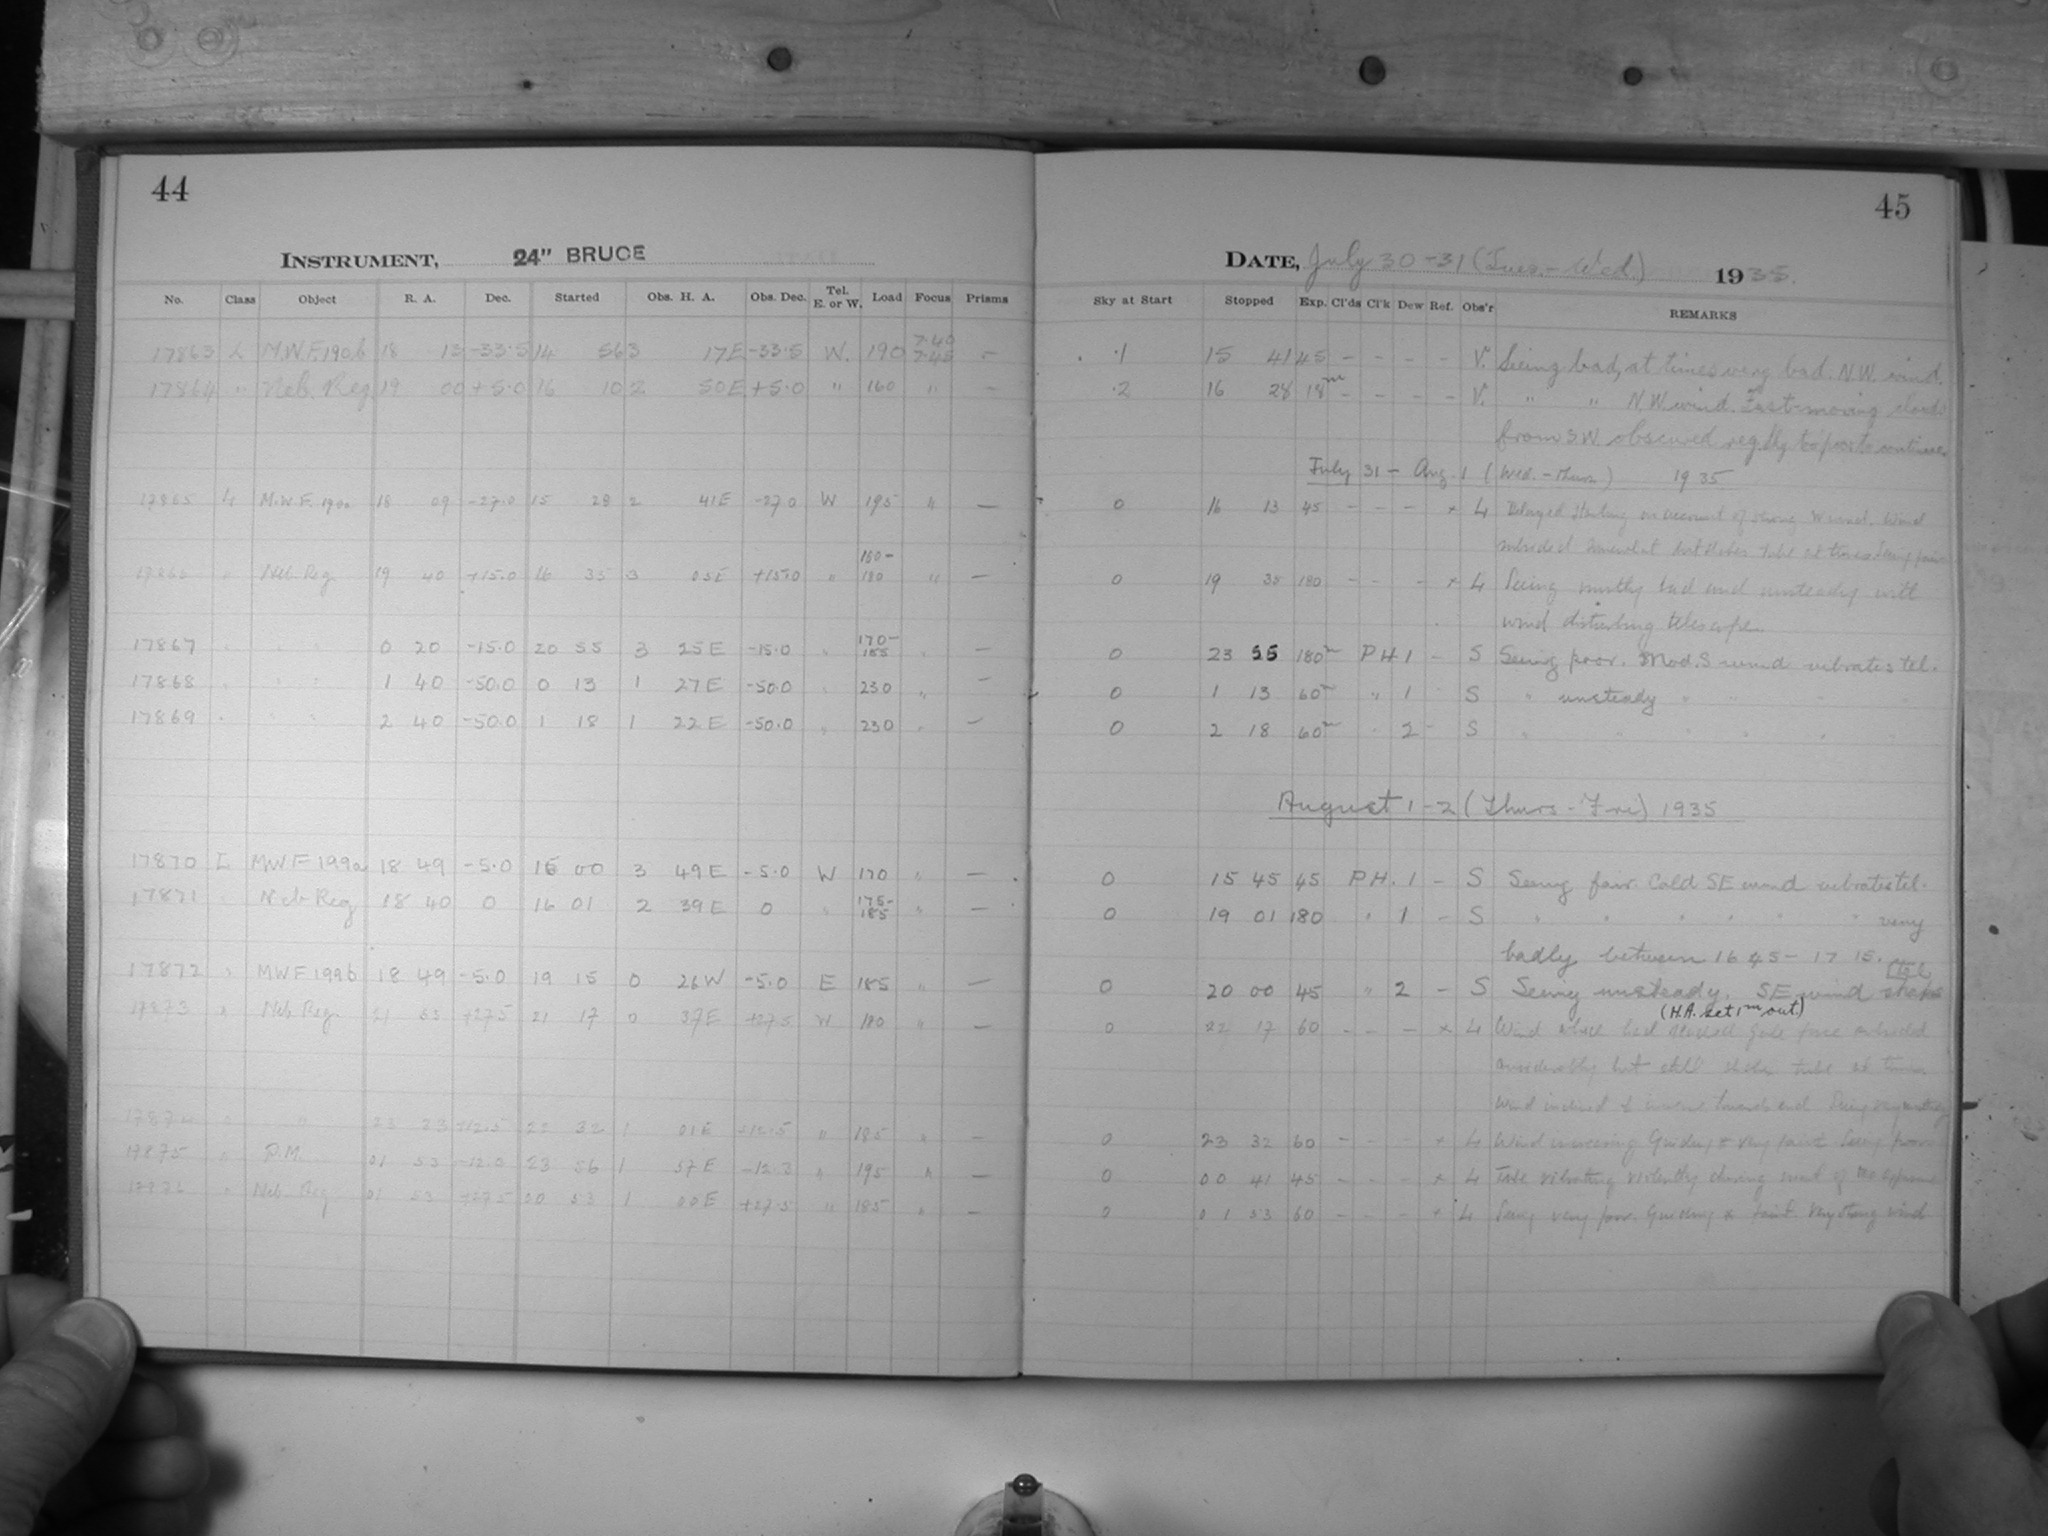 44
INSTRUMENT, 24" BRUCE
No. Class Object R. A. Dec. Started Obs. H. A. Obs. Dec. Tel. E. or W. Load Focus Prisms
17863 L M.W.F. 190b 18 13 -33.5 14 56 3 17E -33.5 W. 190 7.40 7.45 –
17864 " Neb. Reg 19 00 +5.0 16 10 2 50E +5.0 " 160 " –
17865 L M.W.F. 190a 18 09 -27.0 15 28 2 41E -27.0 W 195 " –
" Neb. Reg 19 40 +15.0 16 35 3 05E +15.0 " 160- 180 " –
17867 " " " 0 20 -15.0 20 55 3 25E -15.0 " 170- 185 " –
17868 " " " 1 40 -50.0 0 13 1 27E -50.0 " 230 " –
17869 " " " 2 40 -50.0 1 18 1 22E -50.0 " 230 " –
17870 L MWF 199a 18 49 -5.0 15 00 3 49E -5.0 W 170 " –
17871 " Neb Reg 18 40 0 16 01 2 39E 0 " 175- 185 " –
17872 " MWF 199b 18 49 -5.0 19 15 0 26W -5.0 E 185 " –
17873 " Neb. Reg. 21 53 +27.5 21 17 0 37E +27.5 W 180 " –
17874 " " 23 23 +12.5 22 32 1 01E +12.5 " 185 " –
17875 " P.M. 01 53 -12.3 23 56 1 57E -12.3 " 195 " –
" Neb. Reg. 01 53 +27.5 00 53 1 00E +27.5 " 185 " –
45
DATE, July 30-31 (Tues.-Wed.) 1935.
Sky at Start Stopped Exp. Cl'ds Cl'k Dew Ref. Obs'r REMARKS
.1 15 41 45 – – – – V. Seeing bad, at times very bad. N.W. wind.
.2 16 28 18m – – – – V. " " N.W wind. Fast-moving clouds
from S.W. obscured reg.
July 31 – Aug. 1 (Wed. – Thurs) 1935
0 16 13 45 – – – x L Delayed starting on account of strong W wind. Wind
subsided somewhat but shakes tube at times. Seeing fair
0 19 35 180 – – – x L Seeing mostly bad and unsteady with
wind disturbing telescope.
0 23 55 180m P H 1 – S Seeing poor. Mod. S wind vibrates tel.
0 1 13 60m " 1 S " unsteady "
0 2 18 60m " 2 – S " " " " "
August 1-2 (Thurs - Fri) 1935
0 15 45 45 P H. 1 – S Seeing fair. Cold SE wind vibrates tel.
0 19 01 180 " 1 – S " " " " " " very
badly between 16 45 – 17 15.
0 20 00 45 " 2 – S Seeing unsteady. SE wind shakes tel
(H.A. set 1m out)
0 22 17 60 – – – x L Wind which had reached gale force subsided
considerably but still shakes tube at times
0 23 32 60 – – – x L Wind increasing Guiding * very faint Seeing poor
0 00 41 45 – – – x L Tube vibrating violently during most of the exposure
0 01 53 60 – – – x L Seeing very poor. Guiding * faint. Very strong wind